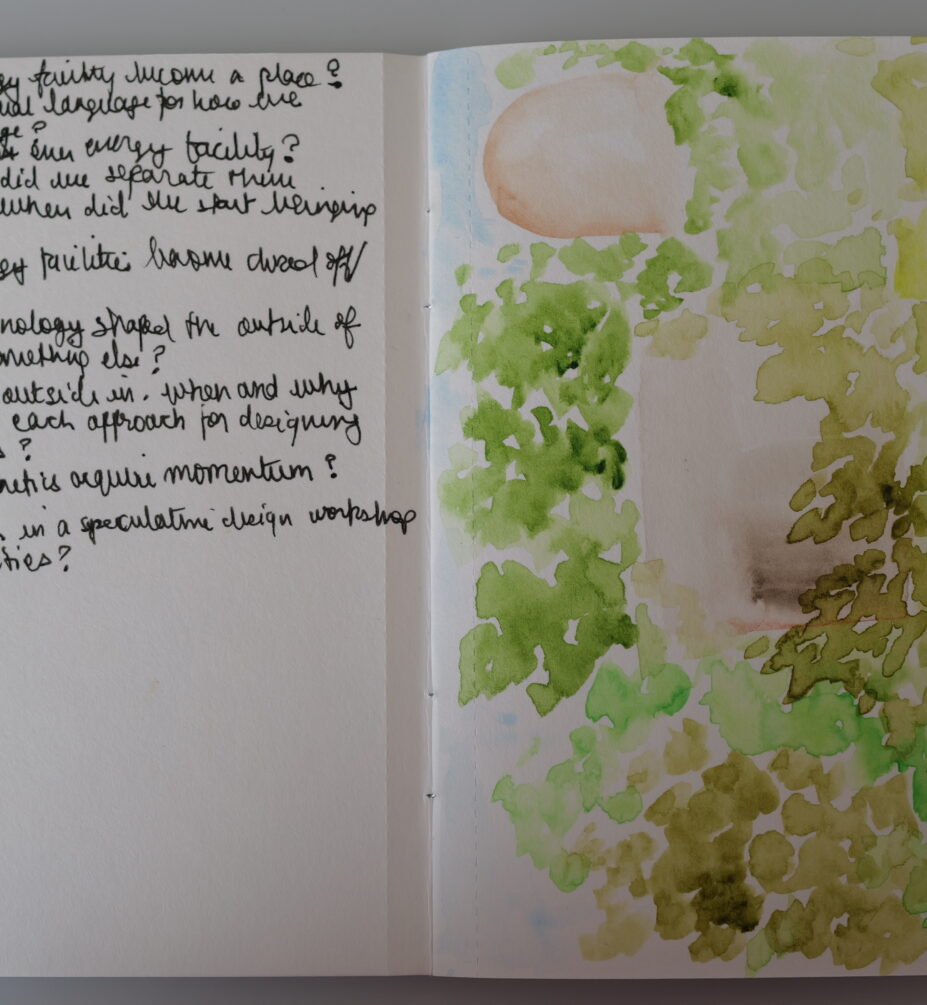 gy facility become a place?
ual language for how we
ge?
our energy facility?
did we separate them
when did we start bringing
gy facilities become dread off/
nology shaped the outside of
omething else?
outside in. when and why
each approach for designing
s?
hetics acquire momentum?
in a speculative design workshop
ties?